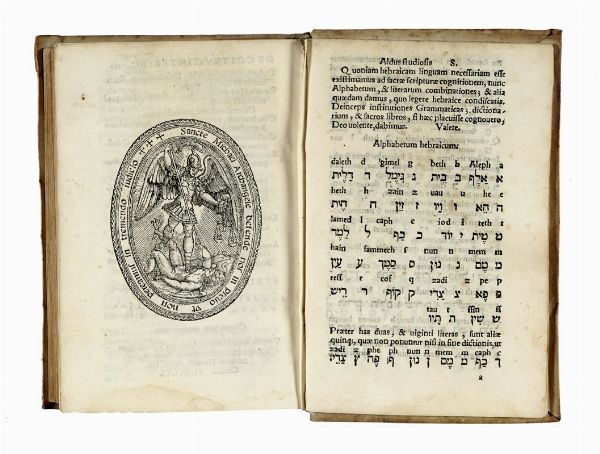 Sancte Michael Archangele defende nos in prelio ut non pereamus in tremendo iudicio
Aldus studiosis S.
Quoniam hebraicam linguam necessariam esse
existimamus ad sacræ scripturæ cognitionem, nunc
Alphabetum, & literarum combinationes, & alia
quædam damus, quo legere hebraice condiscatis.
Deinceps institutiones Grammaticas, dictiona-
rium, & sacros libros, si hæc placuisse cognouero,
Deo uolente, dabimus. Valete.
Alphabetum hebraicum.
daleth d gimel g beth b Aleph a
א אָלֶף ב בֵּית ג גִימֶל ד דָלֶית
heth h zain z uau u he e
ה הֵא ו וָיו ז זַיִן ח חֵית
lamed l caph c iod i teth t
ט טֵית י יוֹד כ כַף ל לָמֶד
hain samnech s nun n mem m
מ מֵם נ נוּן ס סָמֶך ע עַיִן
ress r cof q zadi z pe p
פ פֵא צ צָדִי ק קוֹף ר רֵיש
tau t ssin ss
ש שִין ת תָיו
Præter has duas, & uiginti literas, sunt aliæ
quinq;, quæ non ponuntur nisi in fine dictionis, ut
zadi z phe ph nun n mem m caph c
ך כַף ם מֵם ן נוּן ף פֵה ץ צָדִי
a